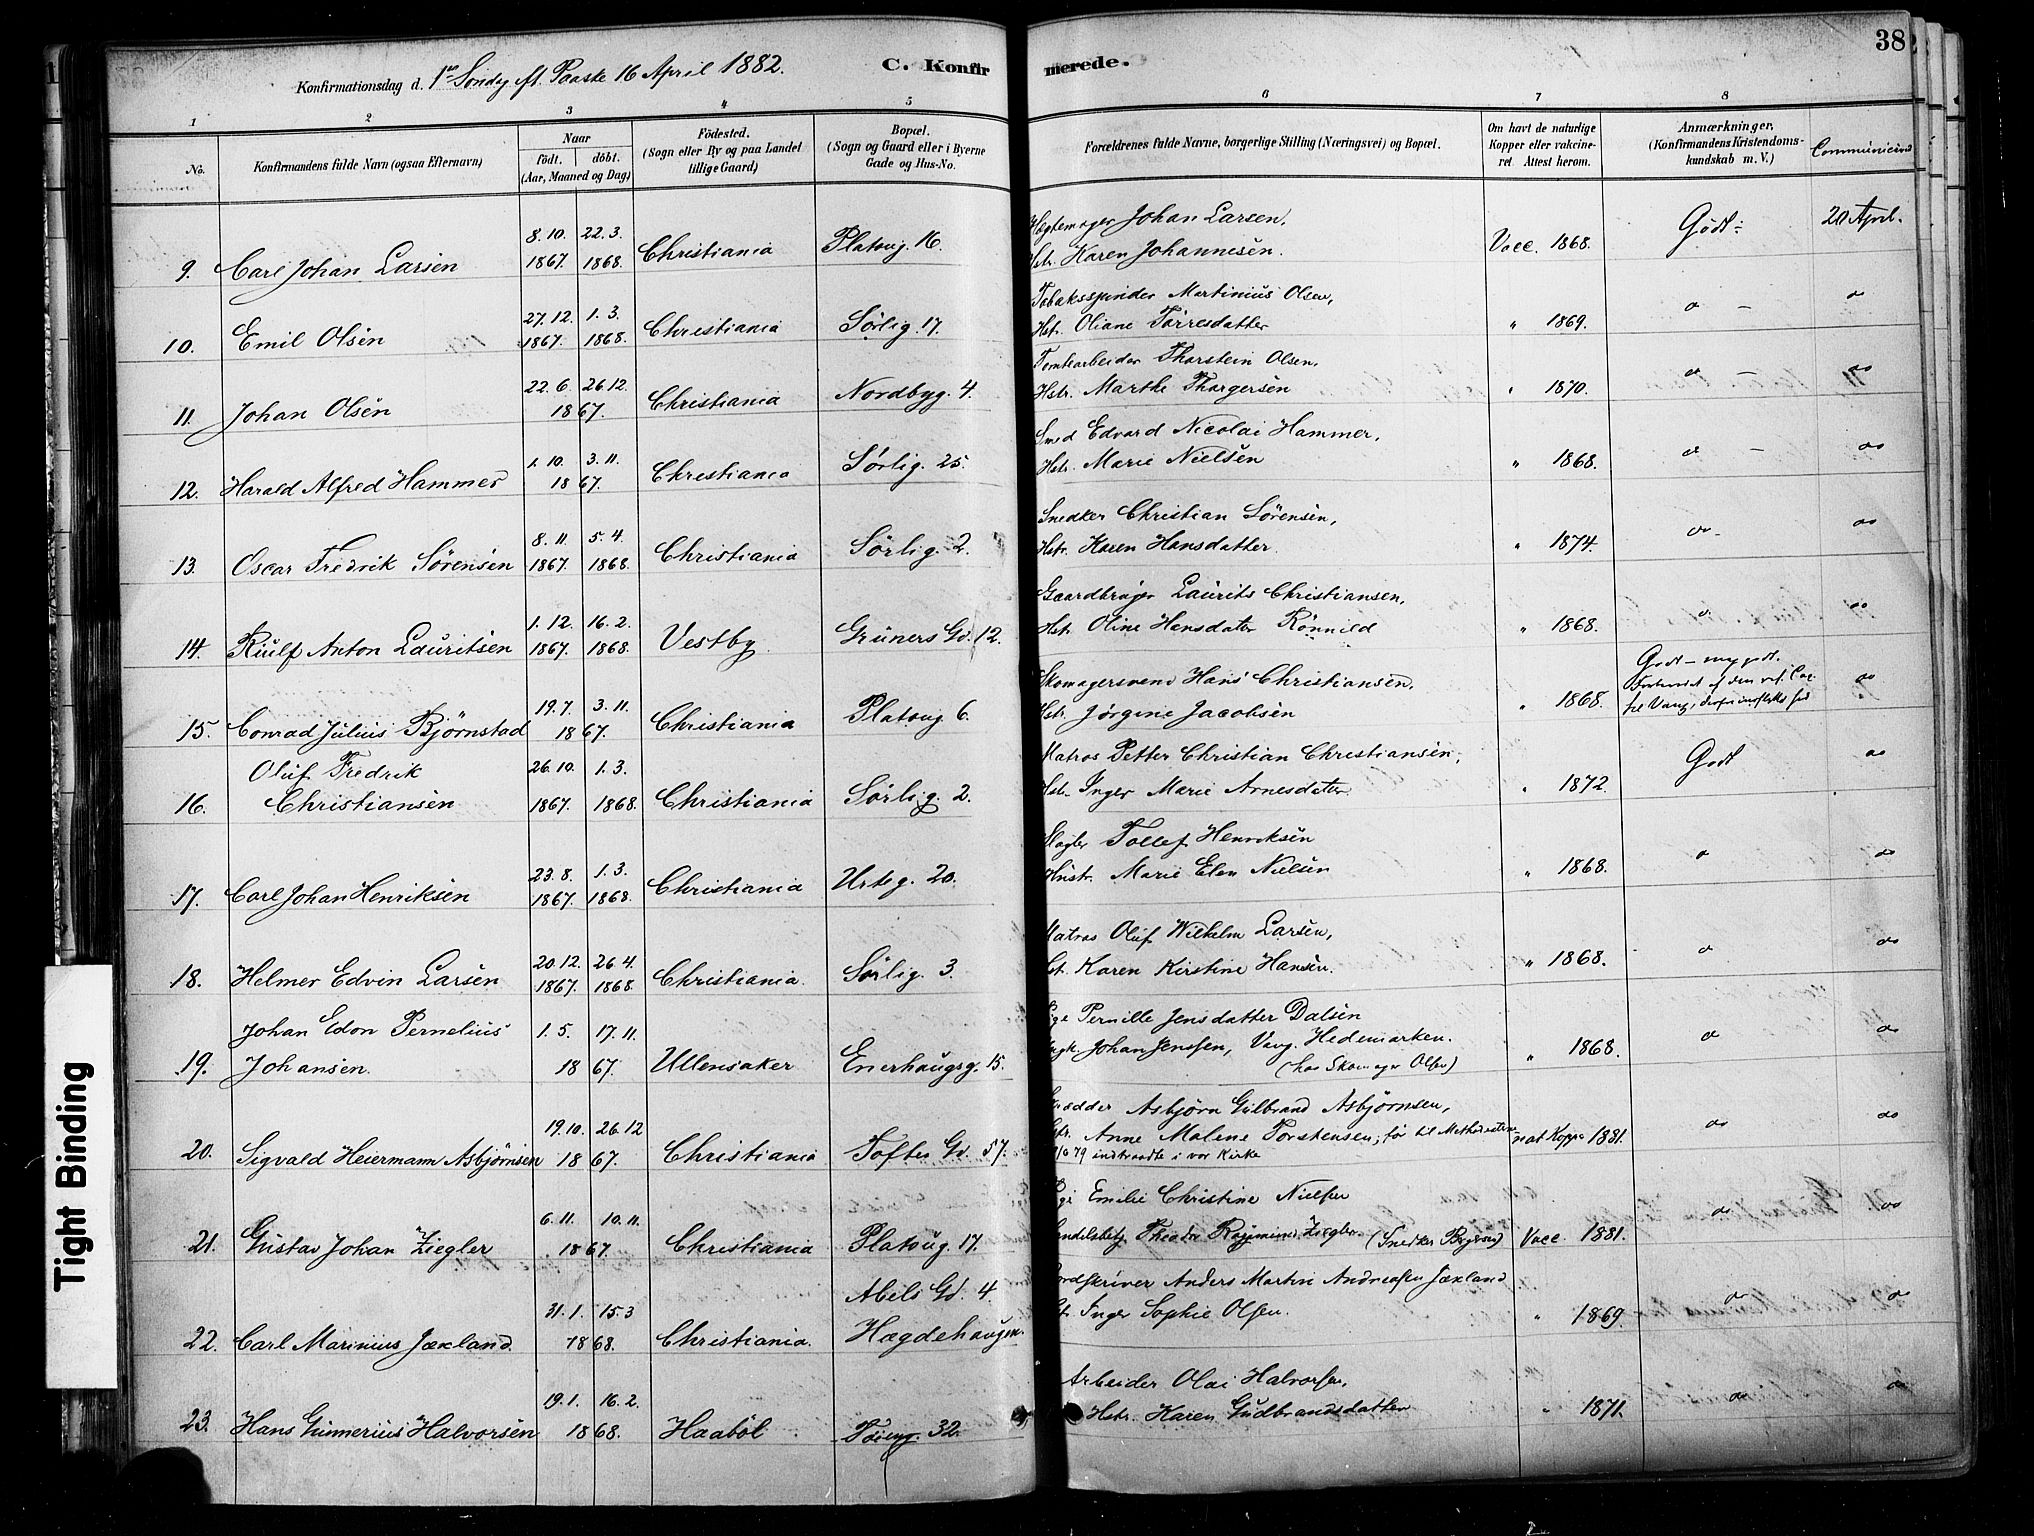 38
Konfirmationsdag d. 1ste Søndg eft. Paaske 16 April 1882. C. Konfirmerede.
1 2 3 4 5 6 7 8
No. Konfirmandens fulde Navn (ogsaa Efternavn) Naar födt. döbt. (Aar, Maaned og Dag) Födested. (Sogn eller By og paa Landet tillige Gaard) Bopæl. (Sogn og Gaard eller i Byerne Gade og Hus-No. Forældrenes fulde Navne, borgerlige Stilling (Næringsvei) og Bopæl. Om havt de naturlige Kopper eller vakcineret. Attest herom. Anmærkninger. (Konfirmandens Kristendomskundskab m. V.)
8.10. 22.3. Johan Larsen, 20 April.
9. Carl Johan Larsen 1867. 1868. Christiania Platoug. 16. Hstr. Karen Johannesen. Vacc. 1868. Godt
27.12. 1.3. Tobaksspinder Martinius Olsen,
10. Emil Olsen 1867. 1868. Christiania Sørlig. 17. Hstr. Oliane Torresdatter " 1869. do
22.6. 26.12. Tomtearbeider Thorstein Olsen,
11. Johan Olsen 1867. Christiania Nordbyg. 4. Hstr. Marthe Thorgersen " 1870. do do
1.10. 3.11. Smed Edvard Nicolai Hammer,
12. Harald Alfred Hammer 1867. Christiania Sørlig. 25. Hstr. Marie Nielsen " 1868. do do
8.11. 5.4. Snedker Christian Sørensen,
13. Oscar Fredrik Sørensen 1867. 1868. Christiania Sørlig. 2. Hstr. Karen Hansdatter. " 1874. do do
1.12. 16.2. Gaardbruger Laurits Christiansen,
14. Rulf Anton Lauritsen 1867. 1868. Vestby Grüners Gd. 12. Hstr. Oline Hansdatter " 1868. do do
19.7. 3.11. Skomagersvend Hans Christiansen, Godt – meg godt.
15. Conrad Julius Bjørnstad 1867. Christiania Platoug. 6. Hstr. Jørgine Jacobsen " 1868. do
Oluf Fredrik 26.10. 1.3. Matros Petter Christian Christiansen,
16. Christiansen 1867. 1868. Christiania Sørlig. 2. Hstr. Inger Marie Arnesdatter " 1872. Godt do
23.8. 1.3. Tollef Henriksen
17. Carl Johan Henriksen 1867. 1868. Christiania Urteg. 20. Hustr. Marie Elen Nielsen " 1868. do do
20.12. 26.4. Matros Oluf Wilhelm Larsen,
18. Helmer Edvin Larsen 1867. 1868. Christiania. Sørlig. 3. Karen Kirstine Hansen. " 1868. do do
Johan Edon Pernelius 1.5. 17.11. Pige Pernille Jensdatter Dalsen
19. Johansen. 1867. Ullensaker Enerhaugsg. 15. Johan Jenssen, Vang. Hedemarken. " 1868. do do
(hos Skomager Olsen)
19.10. 26.12 Asbjørn Gulbrand Asbjørnsen,
20. Sigvald Heiermann Asbjørnsen 1867. Christiania Toftes Gd. 57. Anne Malene Torstensen, før til nat Kopp. 1881. do do
79 indtraadte i vor Kirke
6.11. 10.11. Pige Emilie Christine Nielsen
21. Gustav Johan Ziegler 1867. Christiania Platoug. 17. Ziegler (Snedker Vacc. 1881. do do
31.1. 15.3 Abels Gd. 4. Anders Martin Andreassen Jæxland
22. Carl Marinius Jæxland. 1868. Christiania. Hægdehaugen. Inger Sophie Olsen. " 1869. do do
19.1. 16.2. Arbeider Olai Halvorsen,
23. Hans Gunnerius Halvorsen 1868. Haabøl Tøieng. 32. Hstr. Karen Gudbrandsdatter " 1871. do do
Tight Binding